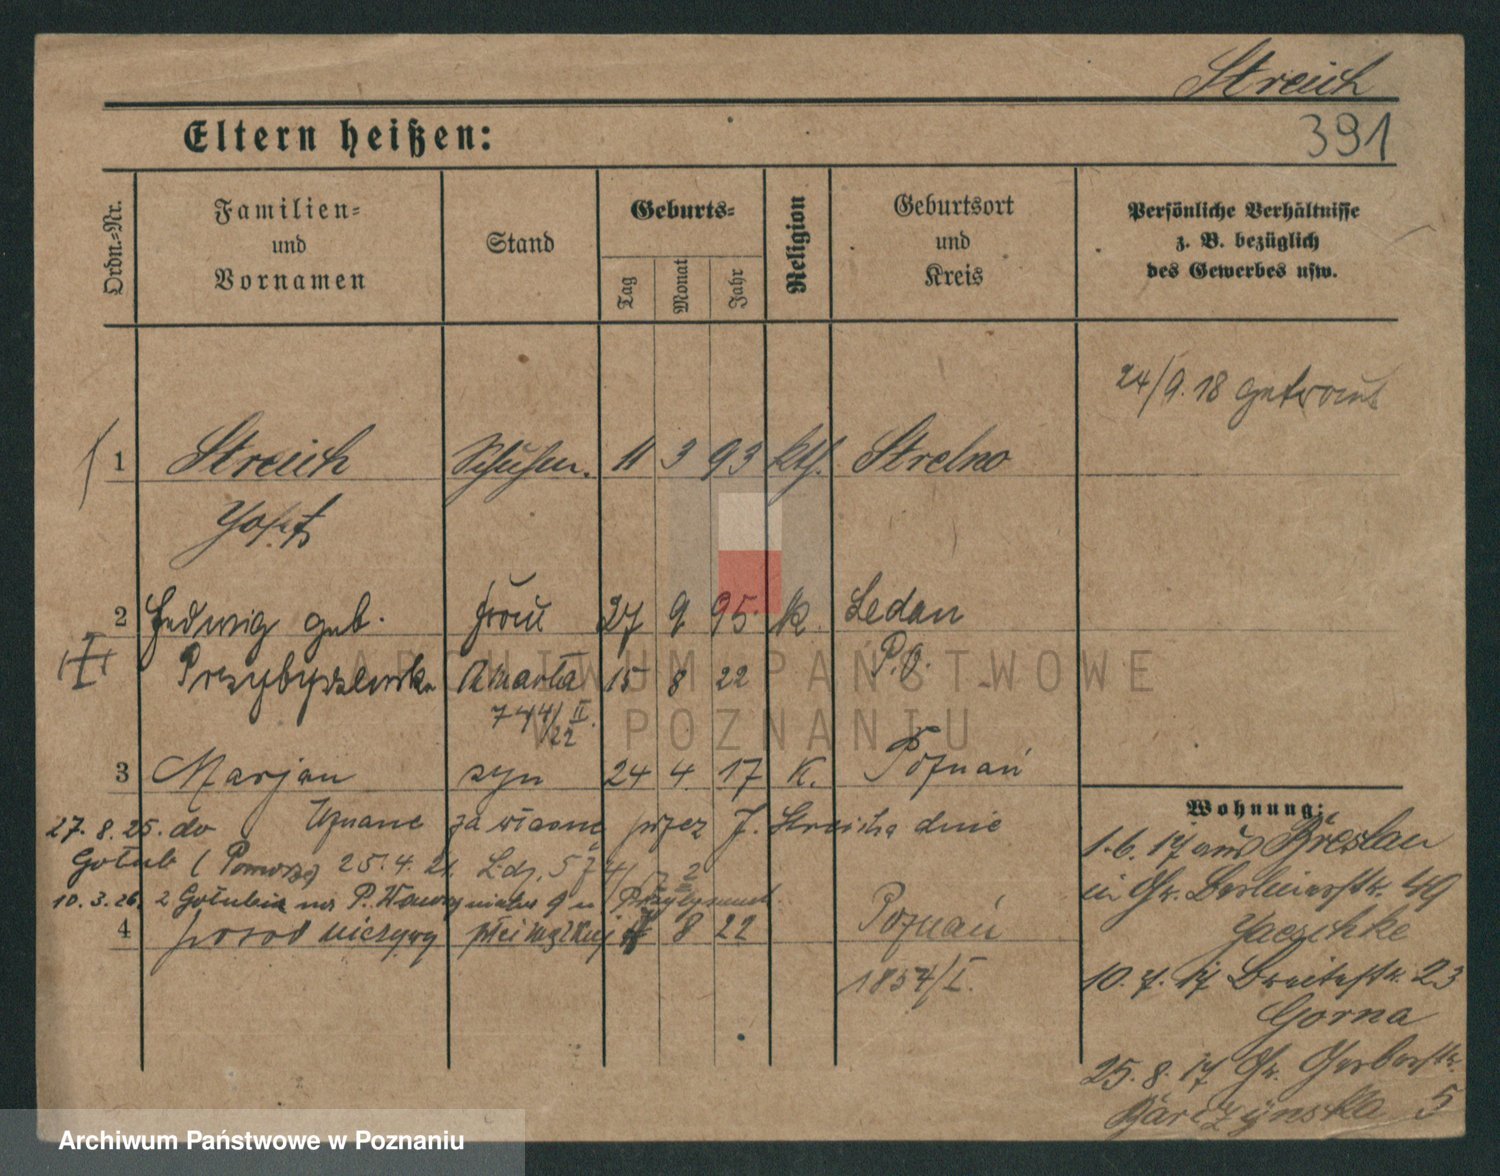 Streich
391
Eltern heißen:
Ordn.-Nr.
Familien-
und
Vornamen
Stand
Geburts-
Tag
Monat
Jahr
Religion
Geburtsort
und
Kreis
Persönliche Verhältnisse
z. B. bezüglich
des Gewerbes usw.
24/9.18 getraut
1 Streich 11 3 93 kth. Strelno
Josef
2 Hedwig geb. Frau 27 9 95. K. Ledan
Przybyszewska zmarła 15 8 22 P.O.
744/II
22
3 Marjan syn 24 4. 17 K. Poznań
Uznane za własne przez J. Streicha dnie
27. 8. 25. do
Gołub (Pomorze) 25. 4. 21.
10. 3. 26. z Gołubia na P.
4 porod nieżywy płci 8 22 Poznań
1854/I.
Wohnung:
1.6.17 aus Breslau
in Gr. Berlinerstr. 49
Jaeschke
10. 7. 17 Breitestr. 23
Gorna
25. 8. 17 Gr. Gerberstr.
5
ARCHIWUM PAŃSTWOWE
W POZNANIU
Archiwum Państwowe w Poznaniu